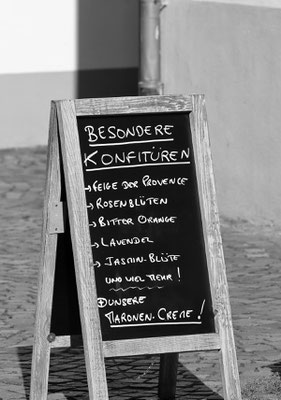 BESONDERE
KONFITÜREN
→ FEIGE DER PROVENCE
→ ROSENBLÜTEN
→ BITTER ORANGE
→ LAVENDEL
→ JASMIN-BLÜTE
UND VIEL MEHR!
UNSERE
MARONEN-CREME!